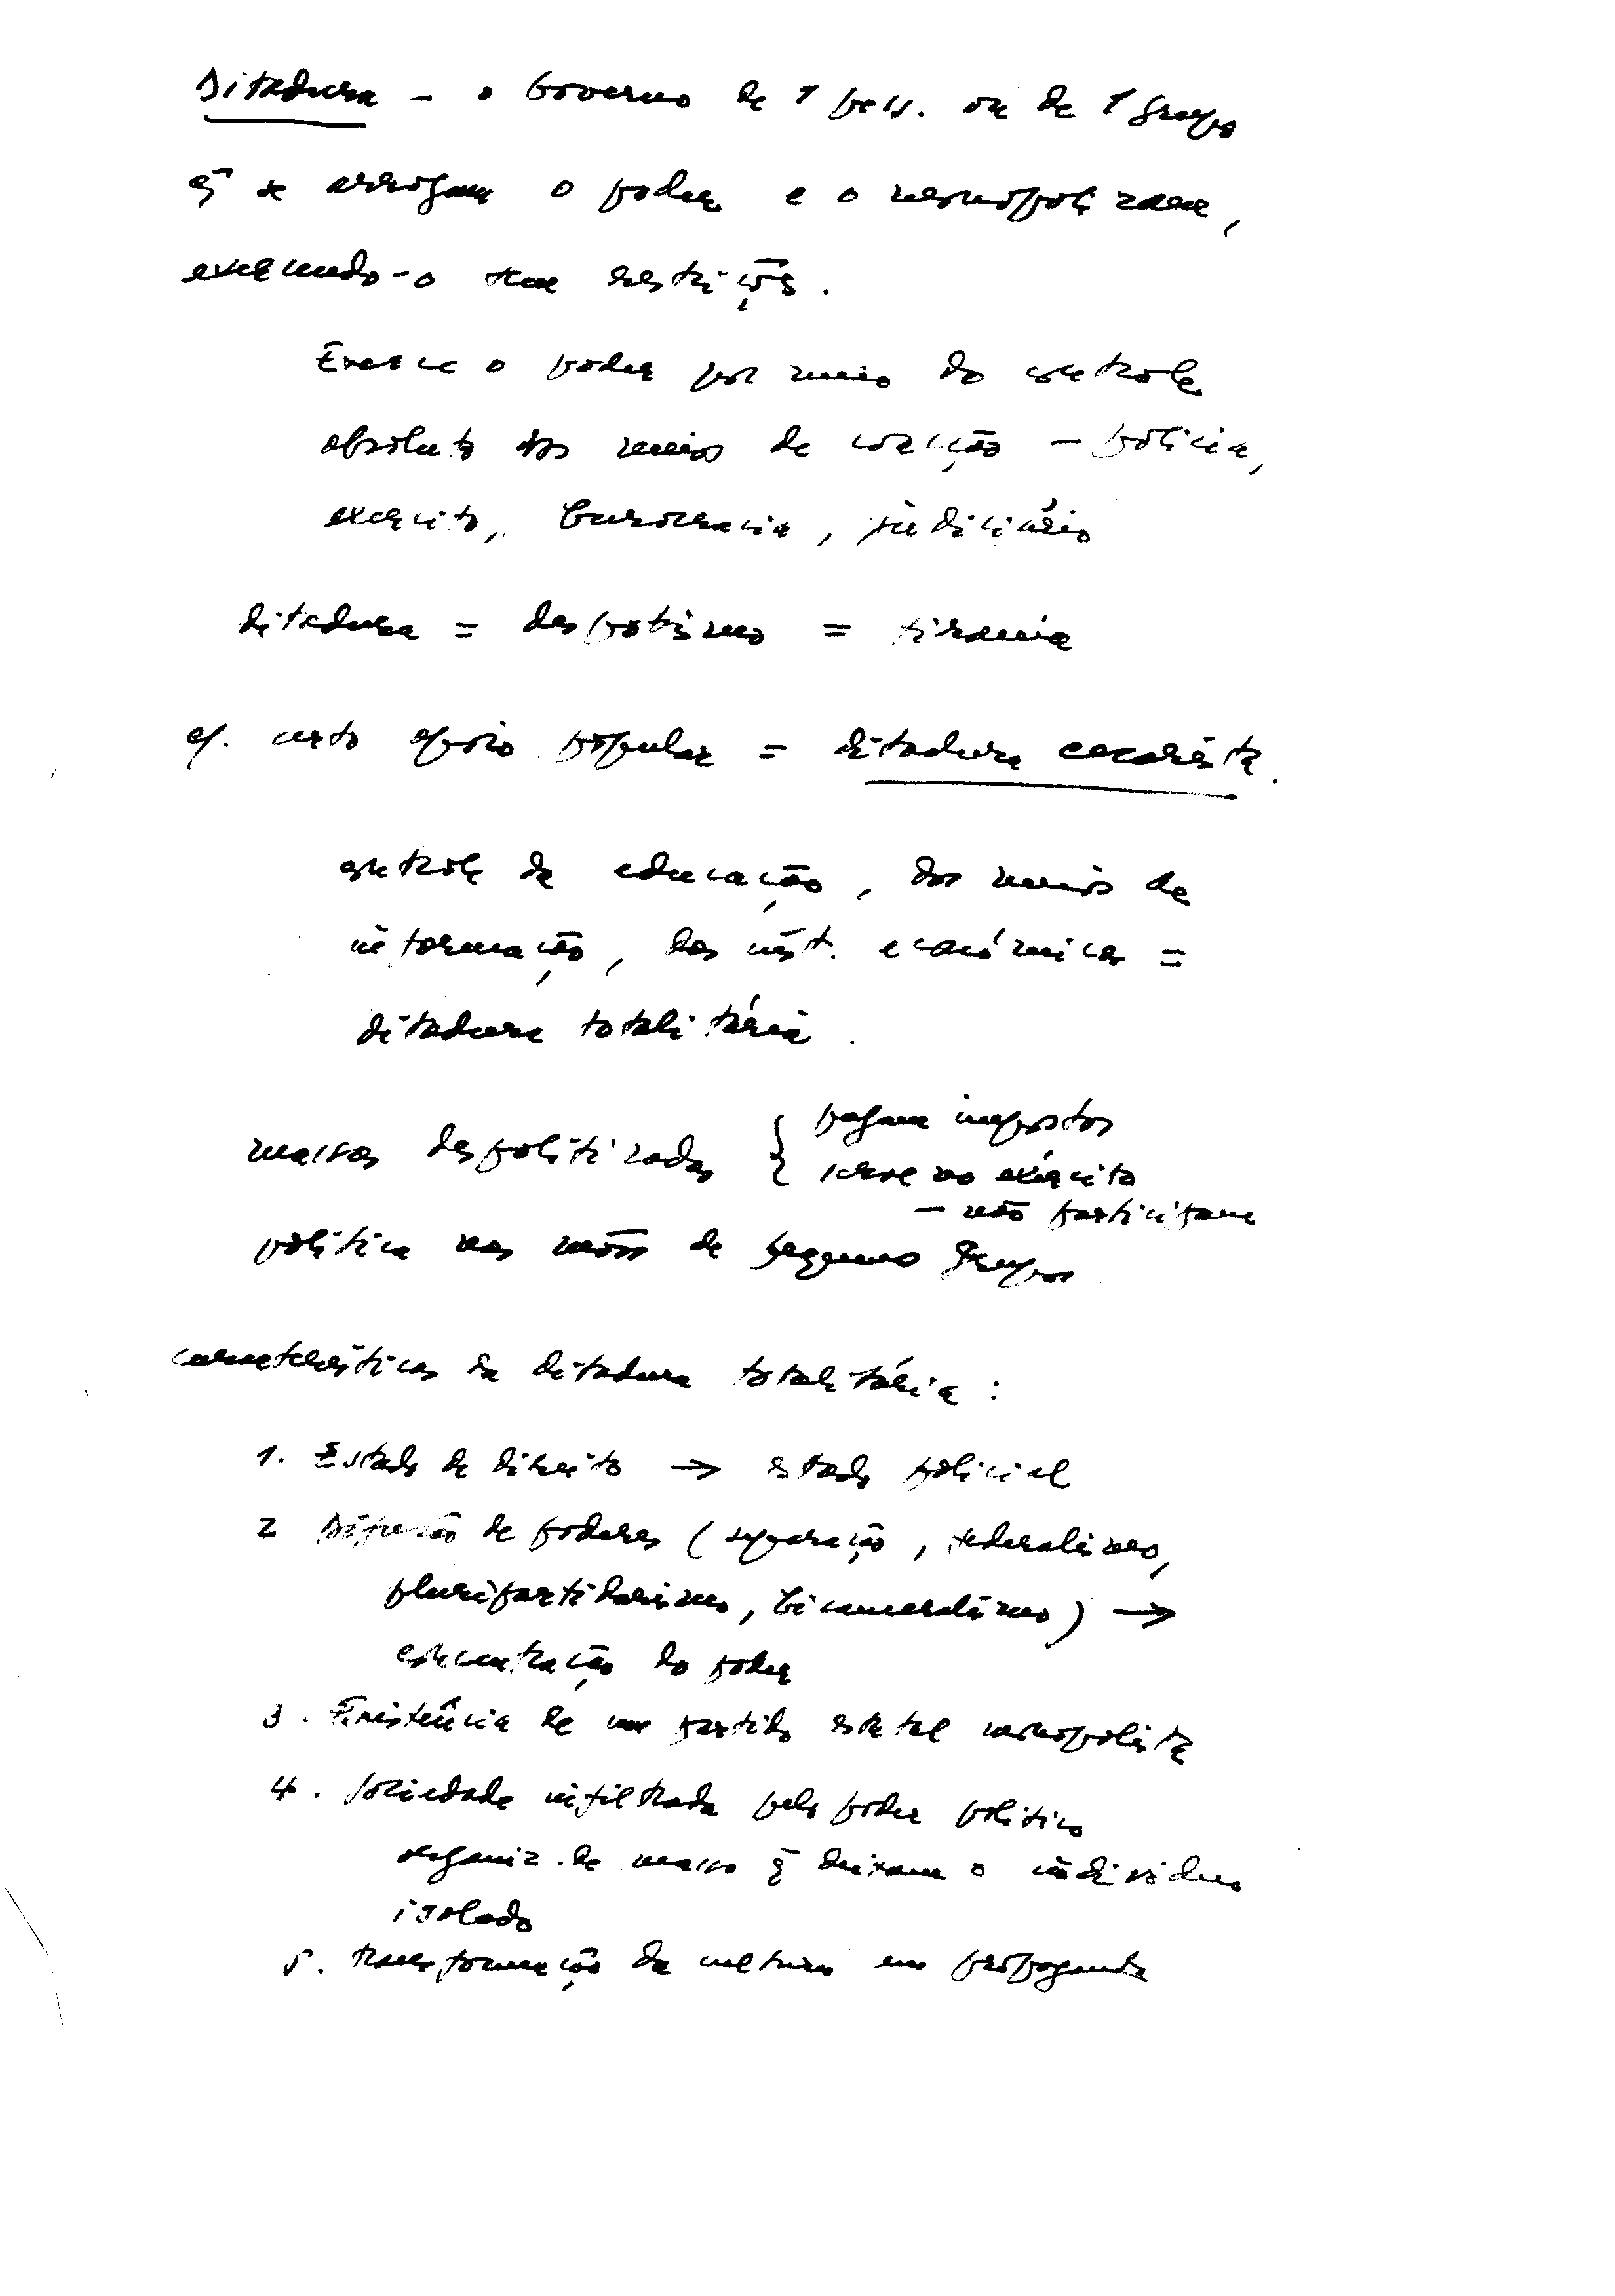 Ditadura - o Governo de 1 pess. ou de 1 grupo
q̃ se arrogam o poder e o monopolizam,
exercendo-o sem restrições.
Exerce o poder por meio do controle
absoluto dos meios de coacção - polícia,
exercito, burocracia, judiciário
ditadura = despotismo = tirania
c/. certo apoio popular = ditadura cesarista.
controle da educação, dos meios de
informação, das inst. económicas =
ditadura totalitária.
massas despolitizadas { pagam impostos
serve no exército
- não participam
política nas mãos de pequenos grupos
características da ditadura totalitária :
1. Estado de direito → estado policial
2 Difusão de poderes ( separação, federalismo,
pluripartidarismo, bicameralismo) →
concentração do poder
3. Existência de um partido estatal monopolista
4. Sociedade infiltrada pelo poder político
organiz. de massa q̃ deixam o indivíduo
isolado
5. transformação da cultura em propaganda